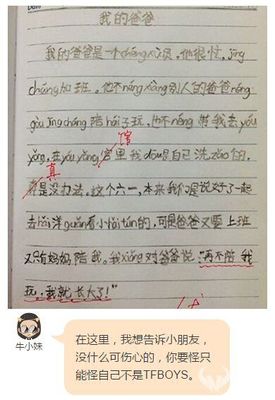 我的爸爸
我的爸爸是一个chéng xù员,他很忙,jīng
cháng 班,他不néng xiàng别人的爸爸néng
gòu jīng cháng陪hái子玩,他不néng带我去yóu
馆
yǒng,去yóu yǒng宫里我dōu是自己洗zǎo的,
真
是没办法,这个六一,本来我们说好了一起
去hǎi洋guǎn看小hǎi tún的,可是爸爸又要上班
又只有妈妈陪我。我xiǎng对爸爸说"再不陪我
玩,我就长大了!"
牛小妹
在这里,我想告诉小朋友,
没什么可伤心的,你要怪只
能怪自己不是TFBOYS。